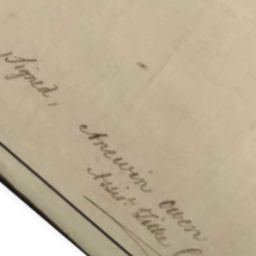 Signed,
Aneurin Owen
Assist. Tithe